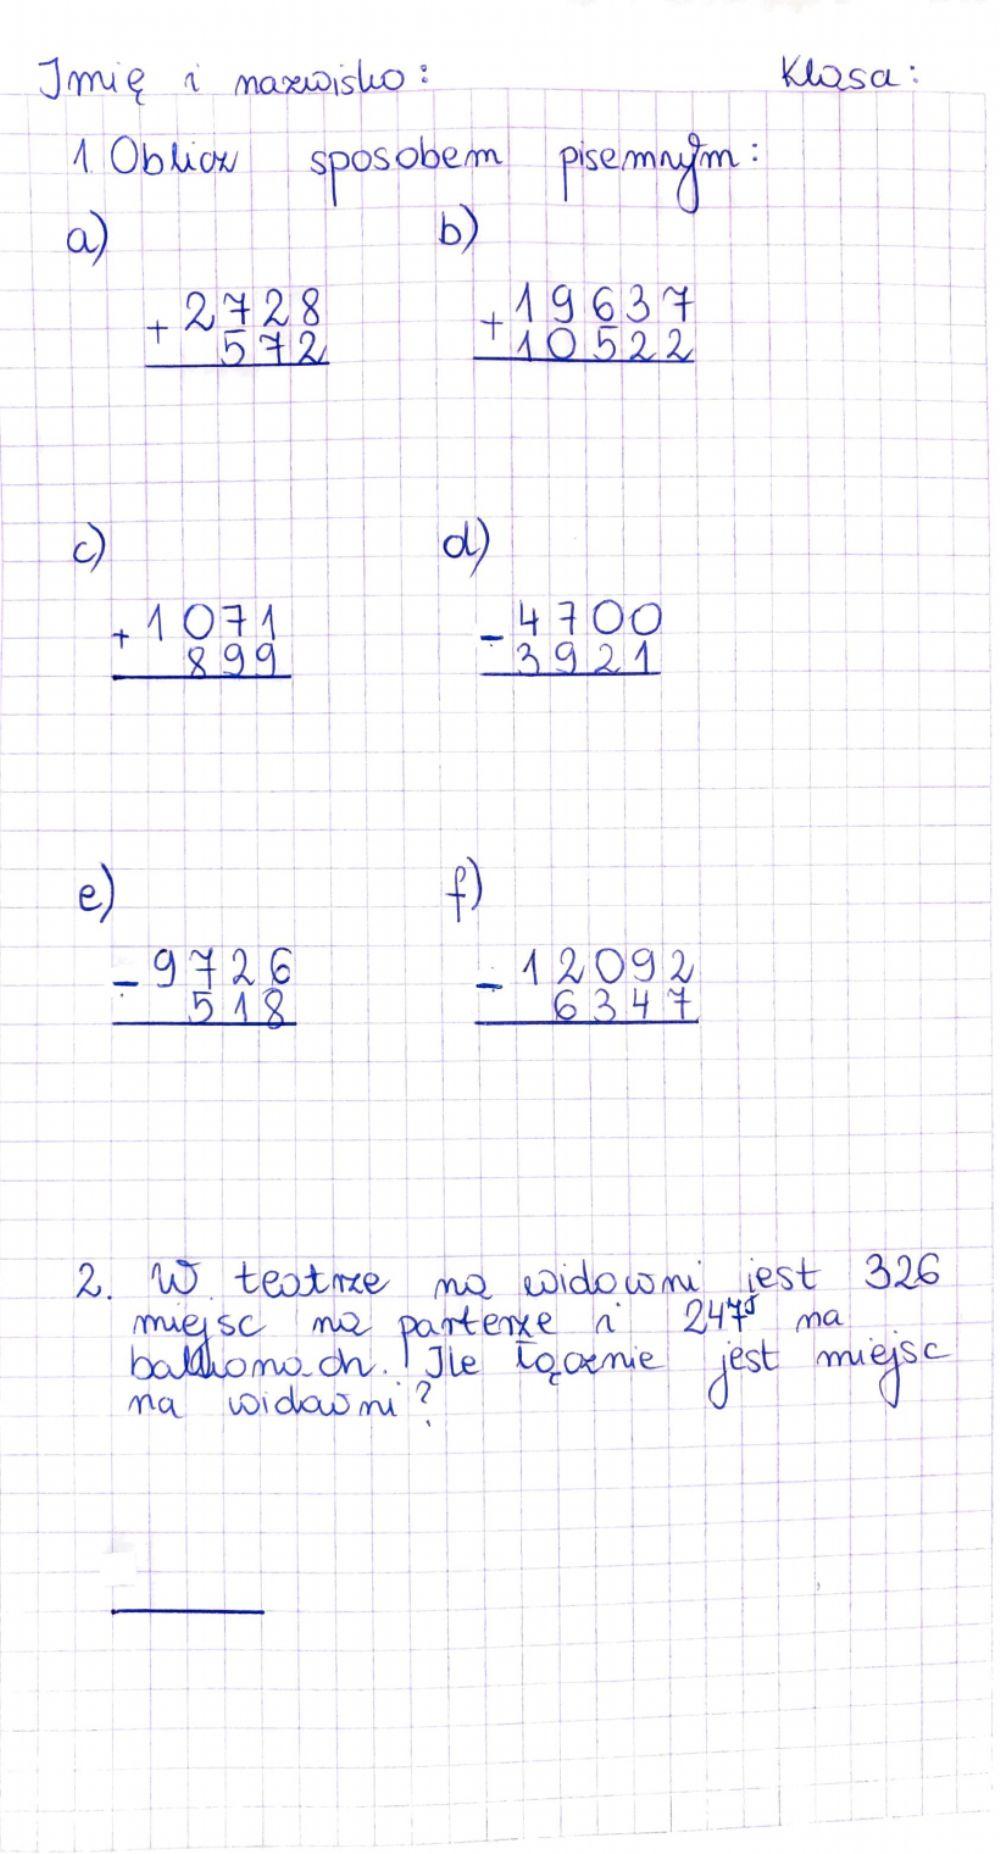 Imię i nazwisko: Klasa:
1. Oblicz sposobem pisemnym:
a) b)
+ 2728 + 19637
572 10522
c) d)
+ 1071 - 4700
899 3921
e) f)
- 9726 - 12092
518 6347
2. W teatrze na widowni jest 326
miejsc na parterze i 247 na
balkonach. Ile łącznie jest miejsc
na widowni?